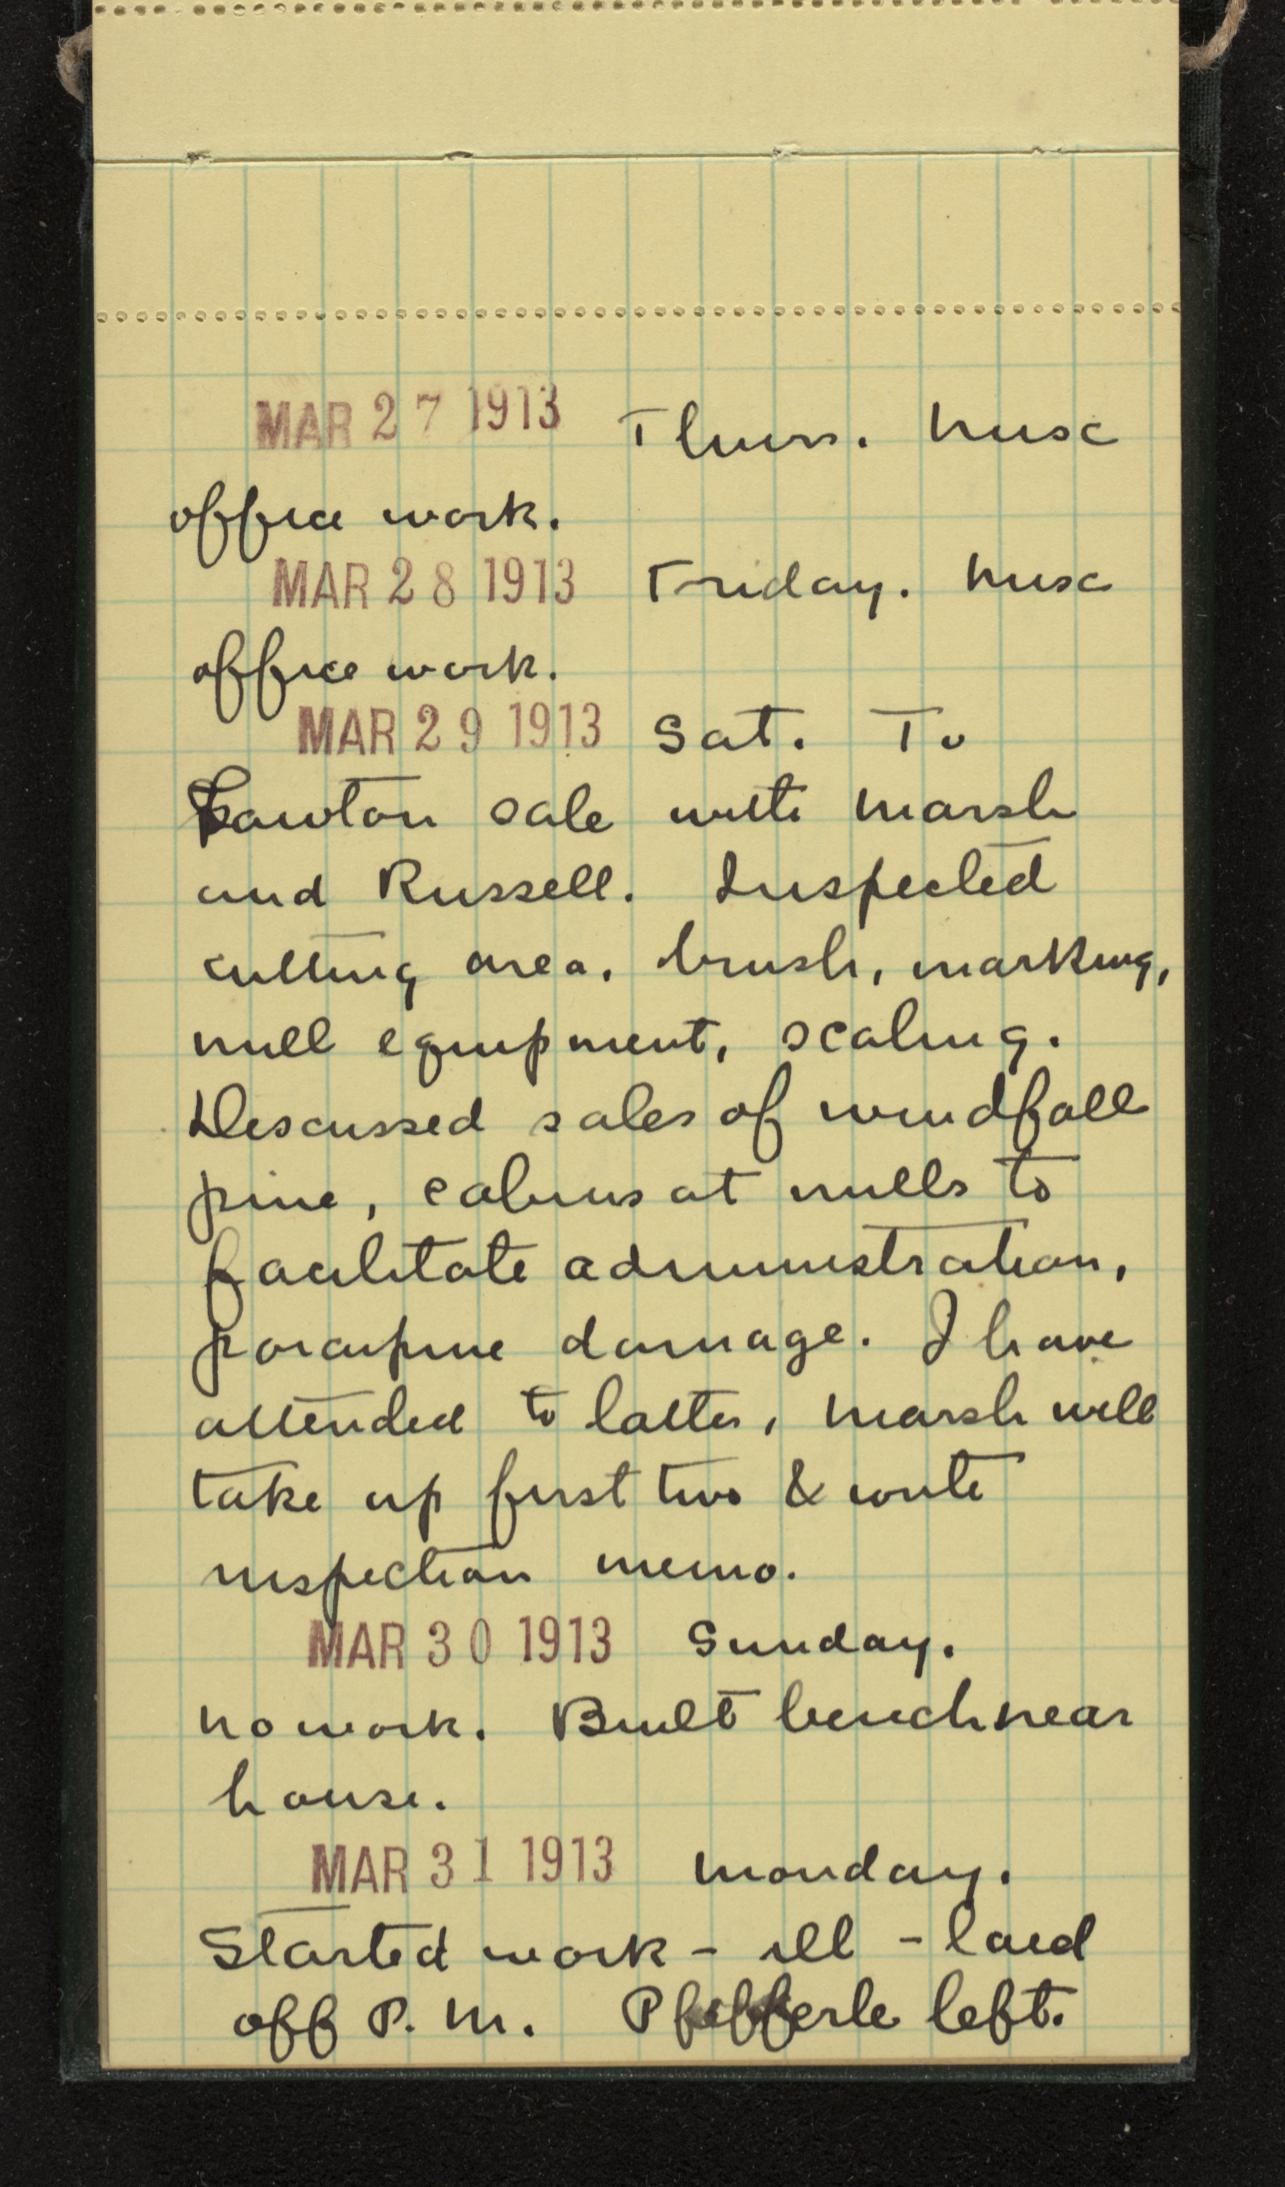 MAR 27 1913 Thurs. Misc
office work.
MAR 28 1913 Friday. Misc
office work.
MAR 29 1913 Sat. To
Lawton sale with Marsh
and Russell. Inspected
cutting area, brush, marking,
mill equipment, scaling.
Discussed sales of windfall
pine, cabins at mills to
facilitate administration,
porcupine damage. I have
attended to latter, Marsh will
take up first two & write
inspection memo.
MAR 30 1913 Sunday.
No work. Built bench near
house.
MAR 31 1913 Monday.
Started work - ill - laid
off P.M. Pfefferle left.